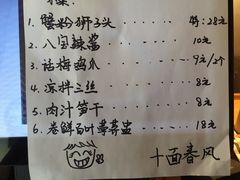 1. 蟹粉狮子头 ...... 每:28元
2. 八宝辣酱 ...... 10元
3. 话梅鸡爪 ...... 9元/2个
4. 凉拌三丝 ...... 8元
5. 肉汁笋干 ...... 8元
6. 卷鲜百叶荠菜 ...... 18元
十面春风